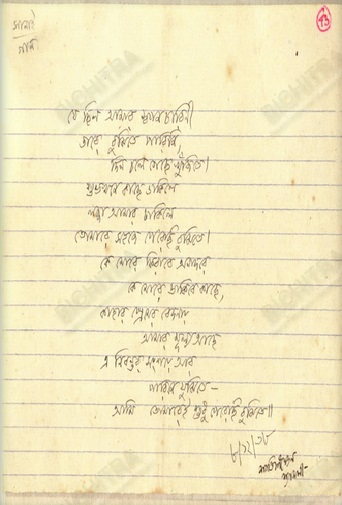 সানাই
গান
১৩
যে ছিল আমার স্বপনচারিণী
তারে বুঝিতে পারিনি,
দিন চলে গেছে খুঁজিতে।
শুভখনে কাছে ডাকিলে
লজ্জা আমার ঢাকিলে
তোমারে সহজে পেরেছি বুঝিতে।
কে মোরে ফিরাবে অনাদরে
কে মোরে ডাকিবে কাছে,
কাহার প্রেমের বেদনায়
আমার মূল্য আছে
এ নিরন্তর সংশয়ে আর
পারিনে যুঝিতে —
আমি তোমারেই শুধু পেরেছি বুঝিতে॥
৮/১২/৩৮
শান্তিনিকেতন